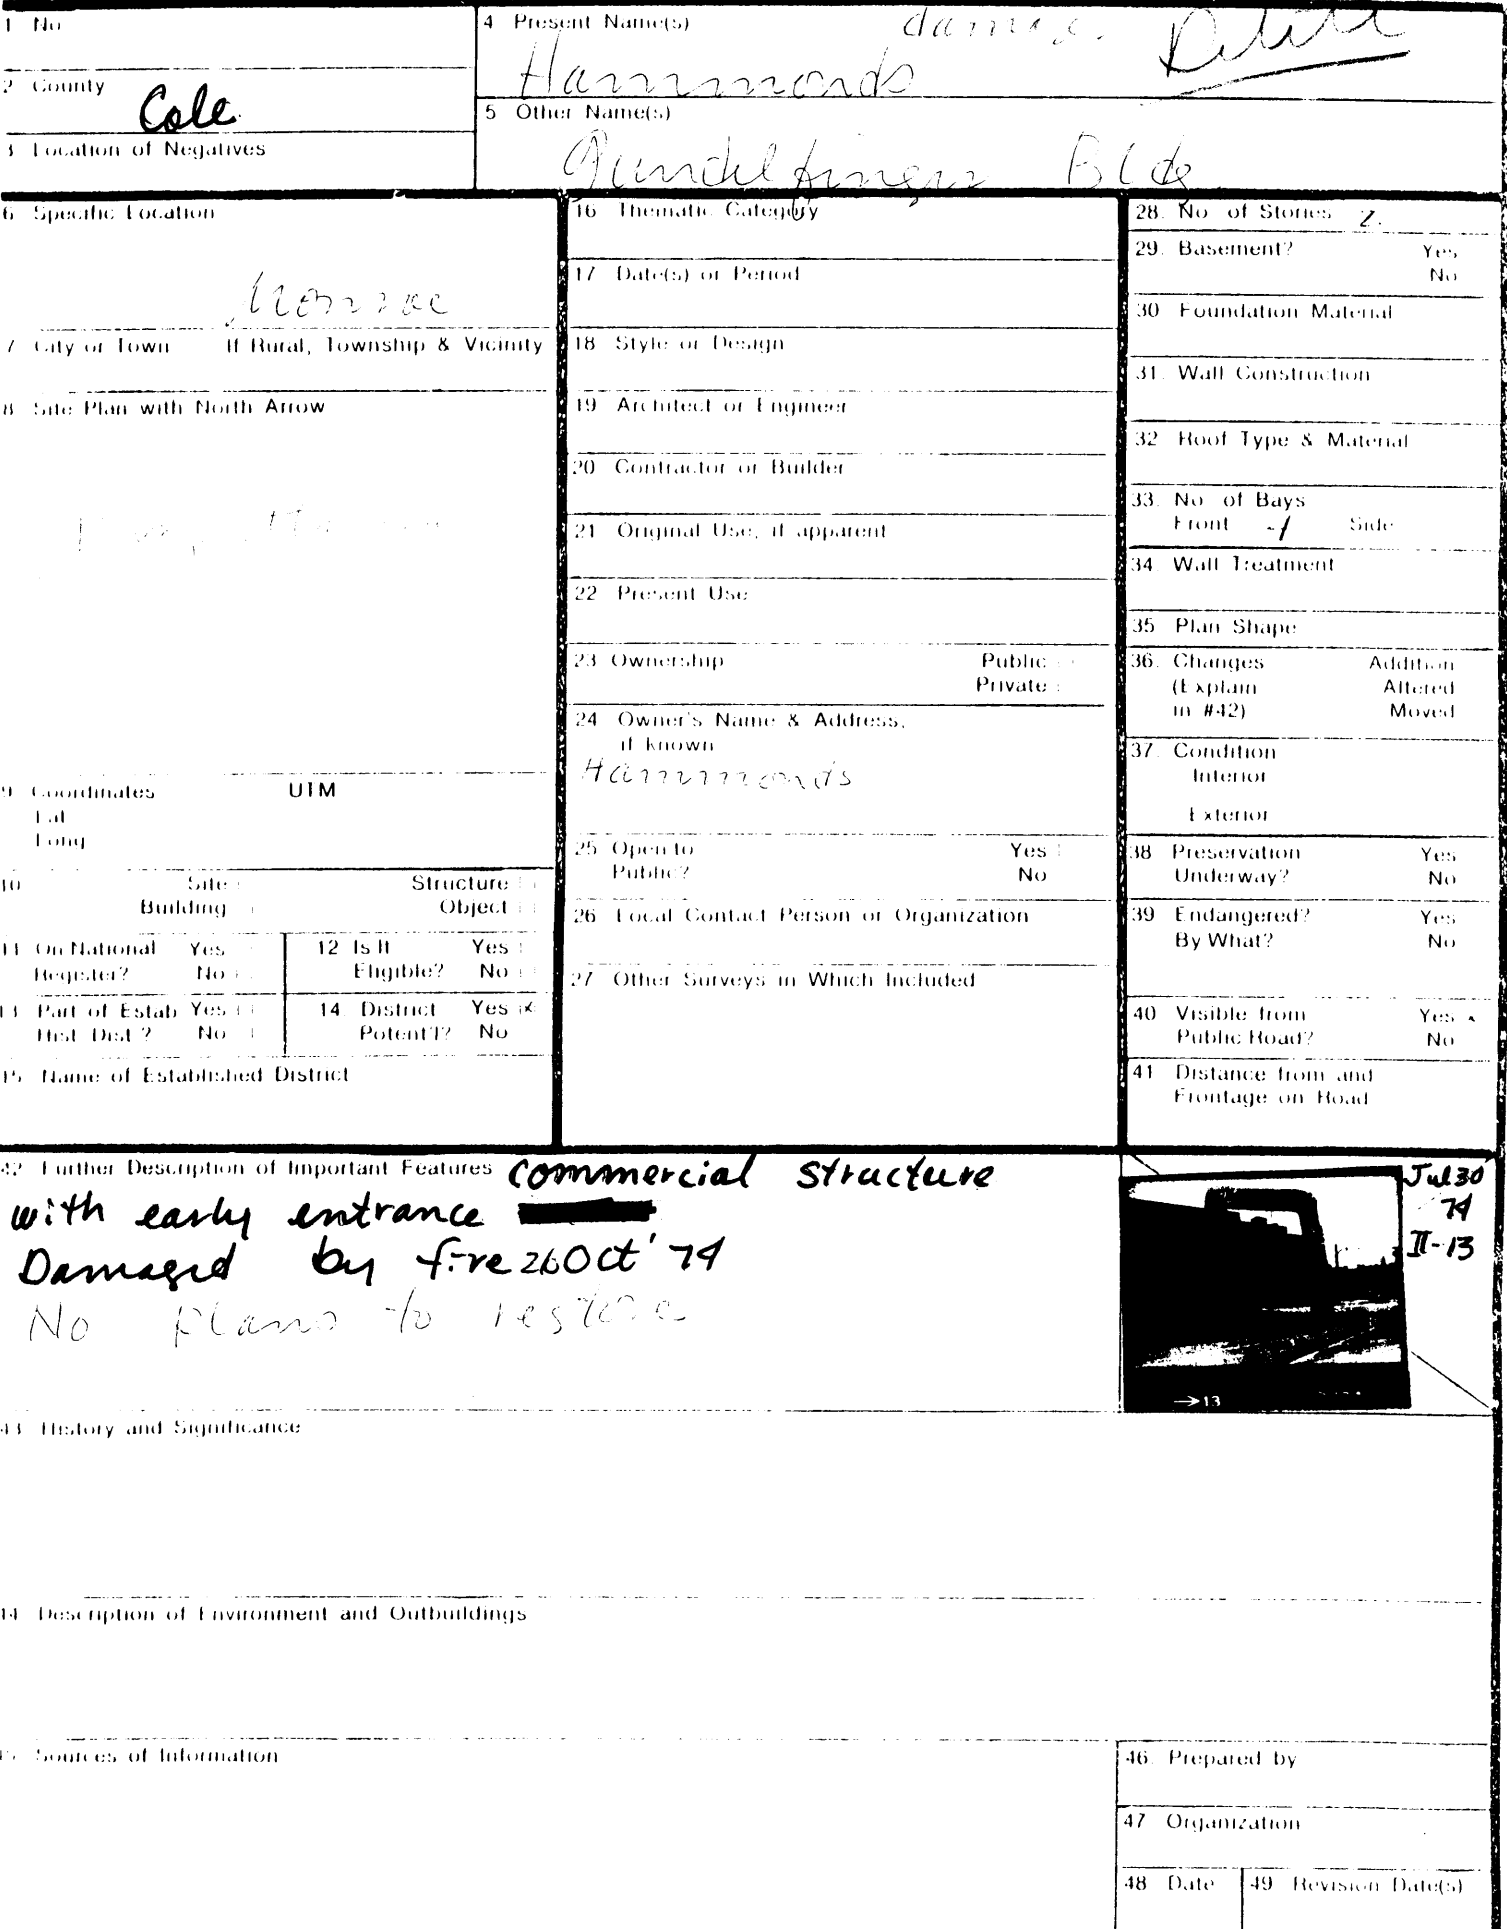 1 No
2 County
Cole
3 Location of Negatives
4 Present Name(s)
Hammonds
5 Other Name(s)
Gundelfinger Bldg
6 Specific Location
Monroe
7 City or Town If Rural, Township & Vicinity
8 Site Plan with North Arrow
9 Coordinates UTM
Lat
Long
10 Site Structure
Building Object
11 On National Register? Yes No
12 Is It Eligible? Yes No
13 Part of Estab Hist Dist ? Yes No
14. District Potent'l? Yes x No
15 Name of Established District
16 Thematic Category
17 Date(s) or Period
18 Style or Design
19 Architect or Engineer
20 Contractor or Builder
21 Original Use, if apparent
22 Present Use
23 Ownership Public
Private
24 Owner's Name & Address,
if known
Hammonds
25 Open to Public? Yes No
26 Local Contact Person or Organization
27 Other Surveys in Which Included
28. No of Stories 2
29. Basement? Yes
No
30 Foundation Material
31. Wall Construction
32 Roof Type & Material
33. No of Bays
Front Side
34 Wall Treatment
35 Plan Shape
36. Changes Addition
(Explain Altered
in #42) Moved
37. Condition
Interior
Exterior
38 Preservation Underway? Yes No
39 Endangered? Yes
By What? No
40 Visible from Public Road? Yes x No
41 Distance from and
Frontage on Road
42 Further Description of Important Features commercial structure
with early entrance
Damaged by fire 26 Oct '74
No plans to restore
Jul 30
74
II-13
→13
43 History and Significance
44 Description of Environment and Outbuildings
45 Sources of Information
46. Prepared by
47 Organization
48 Date
49 Revision Date(s)